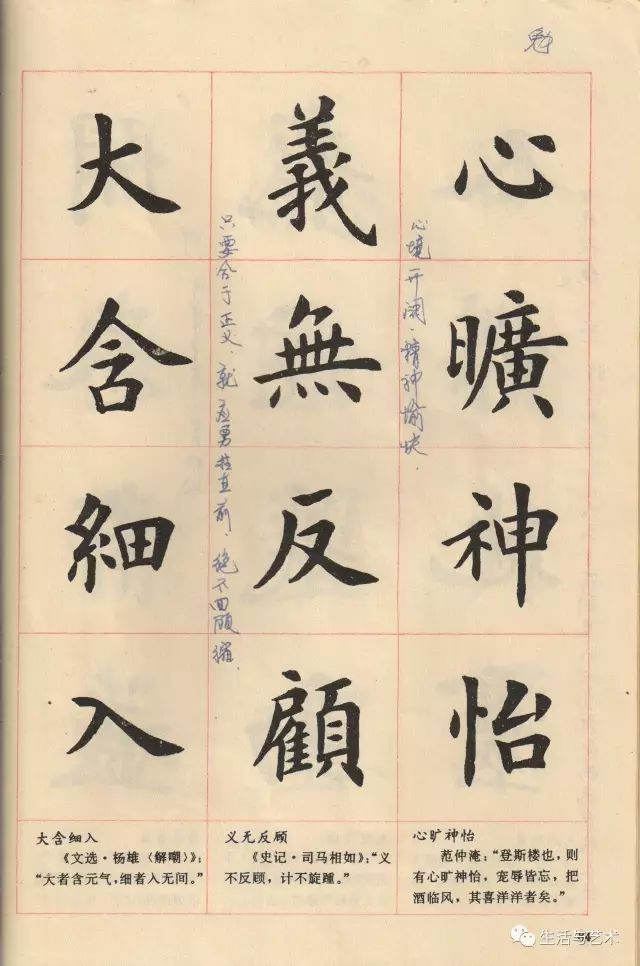 心曠神怡
心境开阔、精神愉快.
義無反顧
只要合于正义、就应勇往直前、绝不回顾
大含細入
心旷神怡
范仲淹：“登斯楼也，则
有心旷神怡，宠辱皆忘，把
酒临风，其喜洋洋者矣。”
义无反顾
《史记·司马相如》：“义
不反顾，计不旋踵。”
大含细入
《文选·杨雄〈解嘲〉》：
“大者含元气，细者入无间。”
生活与艺术